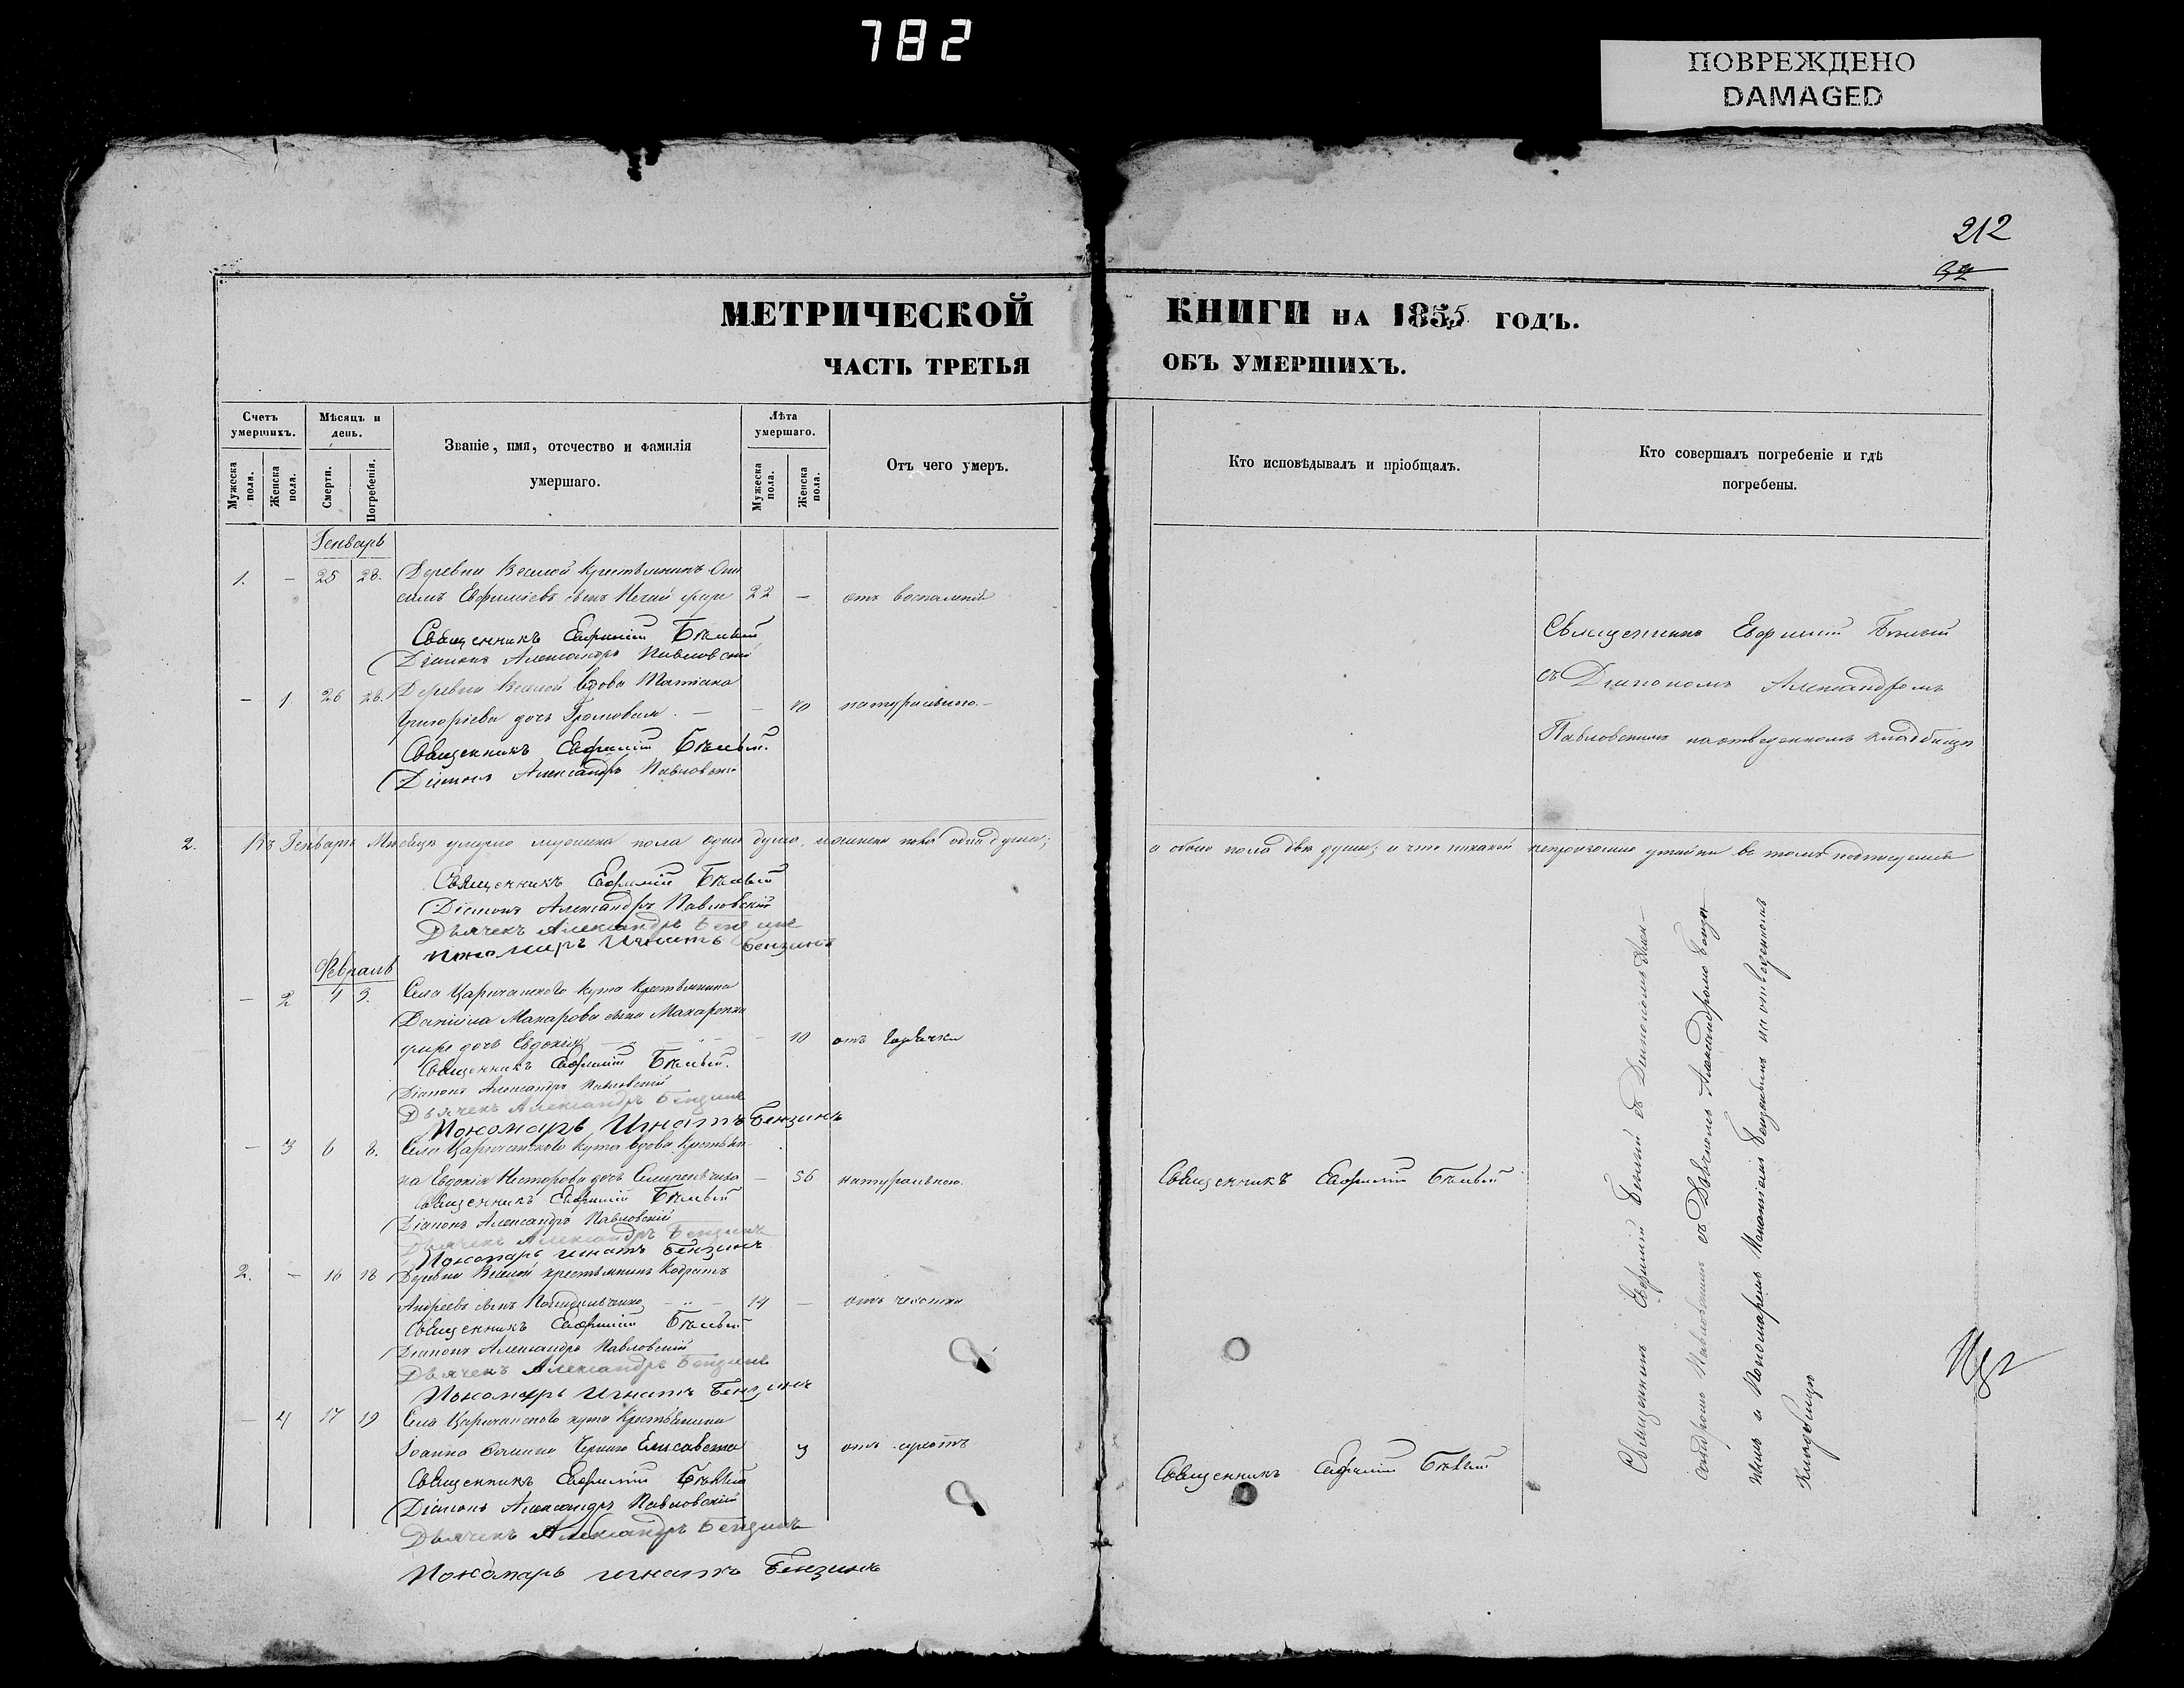 782
ПОВРЕЖДЕНО
DAMAGED
212
32
МЕТРИЧЕСКОЙ КНИГИ НА 1855 ГОДЪ.
ЧАСТЬ ТРЕТЬЯ ОБЪ УМЕРШИХЪ.
Счетъ умершихъ.
Мужеска пола.
Женска пола.
Мѣсяцъ и день.
Смерти.
Погребенія.
Званіе, имя, отчество и фамилія
умершаго.
Лѣта умершаго.
Мужеска пола.
Женска пола.
Отъ чего умеръ.
Кто исповѣдывалъ и пріобщалъ.
Кто совершалъ погребеніе и гдѣ
погребены.
Генварь
1. - 25 28. Деревни Веселой крестьянинъ Они
симъ Евфиміевъ сынъ 22 - отъ воспаленія
Священникъ Евфимій Бѣлый
Діаконъ Александръ Павловскій
- 1 26 28. Деревни Веселой вдова Татіана
Григоріева дочь - - натуральною.
Священникъ Евфимій Бѣлый.
Діаконъ Александръ Павловскій
Священникъ Евфимій Бѣлый
съ Діакономъ Александромъ
Павловскимъ на отведенномъ кладбищѣ
2. Въ Генварѣ Мѣсяцѣ умерло мужеска пола одна душа, и женска пола одна душа;
а обоего пола двѣ души; и что никакой не произошло утайки въ томъ подписуемся
Священникъ Евфимій Бѣлый
Діаконъ Александръ Павловскій
Дьячекъ Александръ Бензинъ
Пономарь Игнатъ Бензинъ
Февраль
- 2 Села Царичанскаго кута крестьянина
Даніила Макарова сына Макаренка
дочь Евдокія - 10 отъ горячки
Священникъ Евфимій Бѣлый.
Діаконъ Александръ Павловскій
Дьячекъ Александръ Бензинъ
Пономарь Игнатъ Бензинъ
- 3 6 8. Села Царичанскаго кута вдова крестьян-
ка Евдокія Несторова дочь - 56 натуральною.
Священникъ Евфимій Бѣлый
Діаконъ Александръ Павловскій
Дьячекъ Александръ Бензинъ
Пономарь Игнатъ Бензинъ
Священникъ Евфимій Бѣлый
2. - 16 18 Деревни Веселой крестьянинъ Кодратъ
Андреевъ сынъ 14 - отъ чахотки
Священникъ Евфимій Бѣлый
Діаконъ Александръ Павловскій
Дьячекъ Александръ Бензинъ
Пономарь Игнатъ Бензинъ
- 4 17 19 Села Царичанскаго кута крестьянина
Іоанна Елисавета
Священникъ Евфимій Бѣлый
Діаконъ Александръ Павловскій
Дьячекъ Александръ Бензинъ
Пономарь Игнатъ Бензинъ
Священникъ Евфимій Бѣлый
Священникъ Евфимій Бѣлый съ Діакономъ Алек-
сандромъ Павловскимъ съ Дьячкомъ Александромъ Бензи-
нымъ и Пономаремъ Бензинымъ на отведенномъ
кладбищѣ